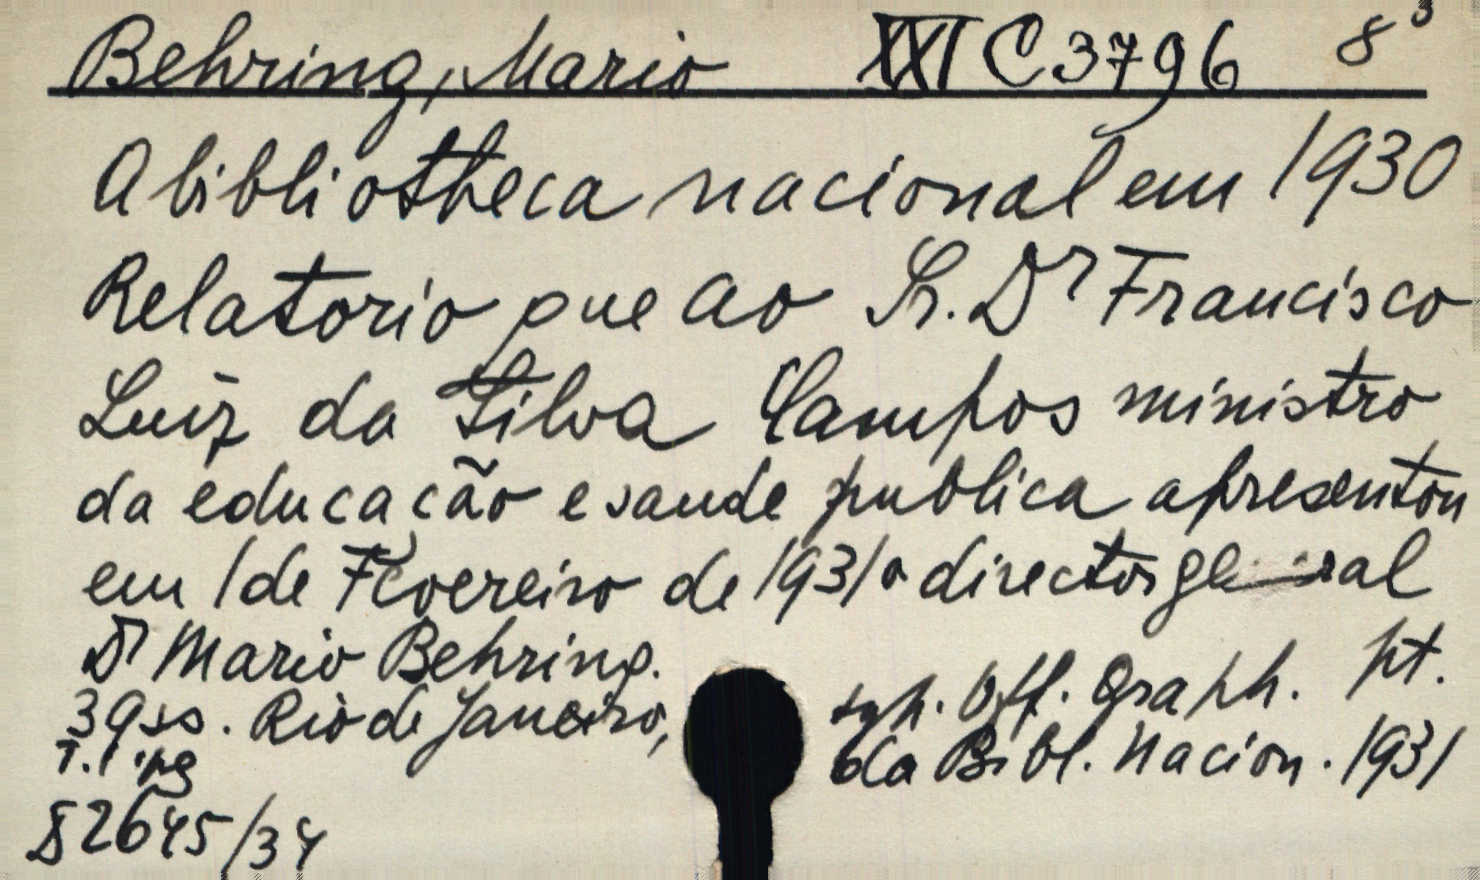 Behring, Mario XXI C 3796 8°
A bibliotheca nacional em 1930
Relatorio que ao Sr. Dr Francisco
Luiz da Silva Campos ministro
da educação e saude publica apresentou
em 1 de Fevereiro de 1931 o director geral
Dr Mario Behring. pt.
39 ss. Rio de Janeiro, typ. Off. Graph.
da Bibl. Nacion. 1931
82645/34